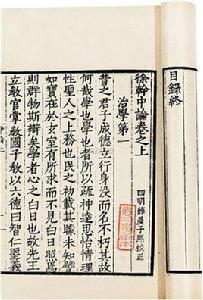 目錄終
徐幹中論卷之上
四明薛晨子熙校正
治學第一
昔之君子成德立行身沒而名不朽其故
何哉學也學也者所以疏神達思怡情理
性聖人之上務也民之初載其矇未知譬
如寶在於玄室有所求而不見白日照焉
則群物斯辯矣學者心之白日也故先王
立教官掌教國子教以六德曰智仁聖義